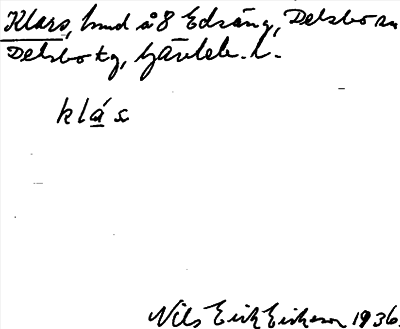 Klars, hmd å 8 Edsäng, Delsbo sn
Delsbo tg, Gävleb. l.
klá s
Nils Erik Erikson 1936.